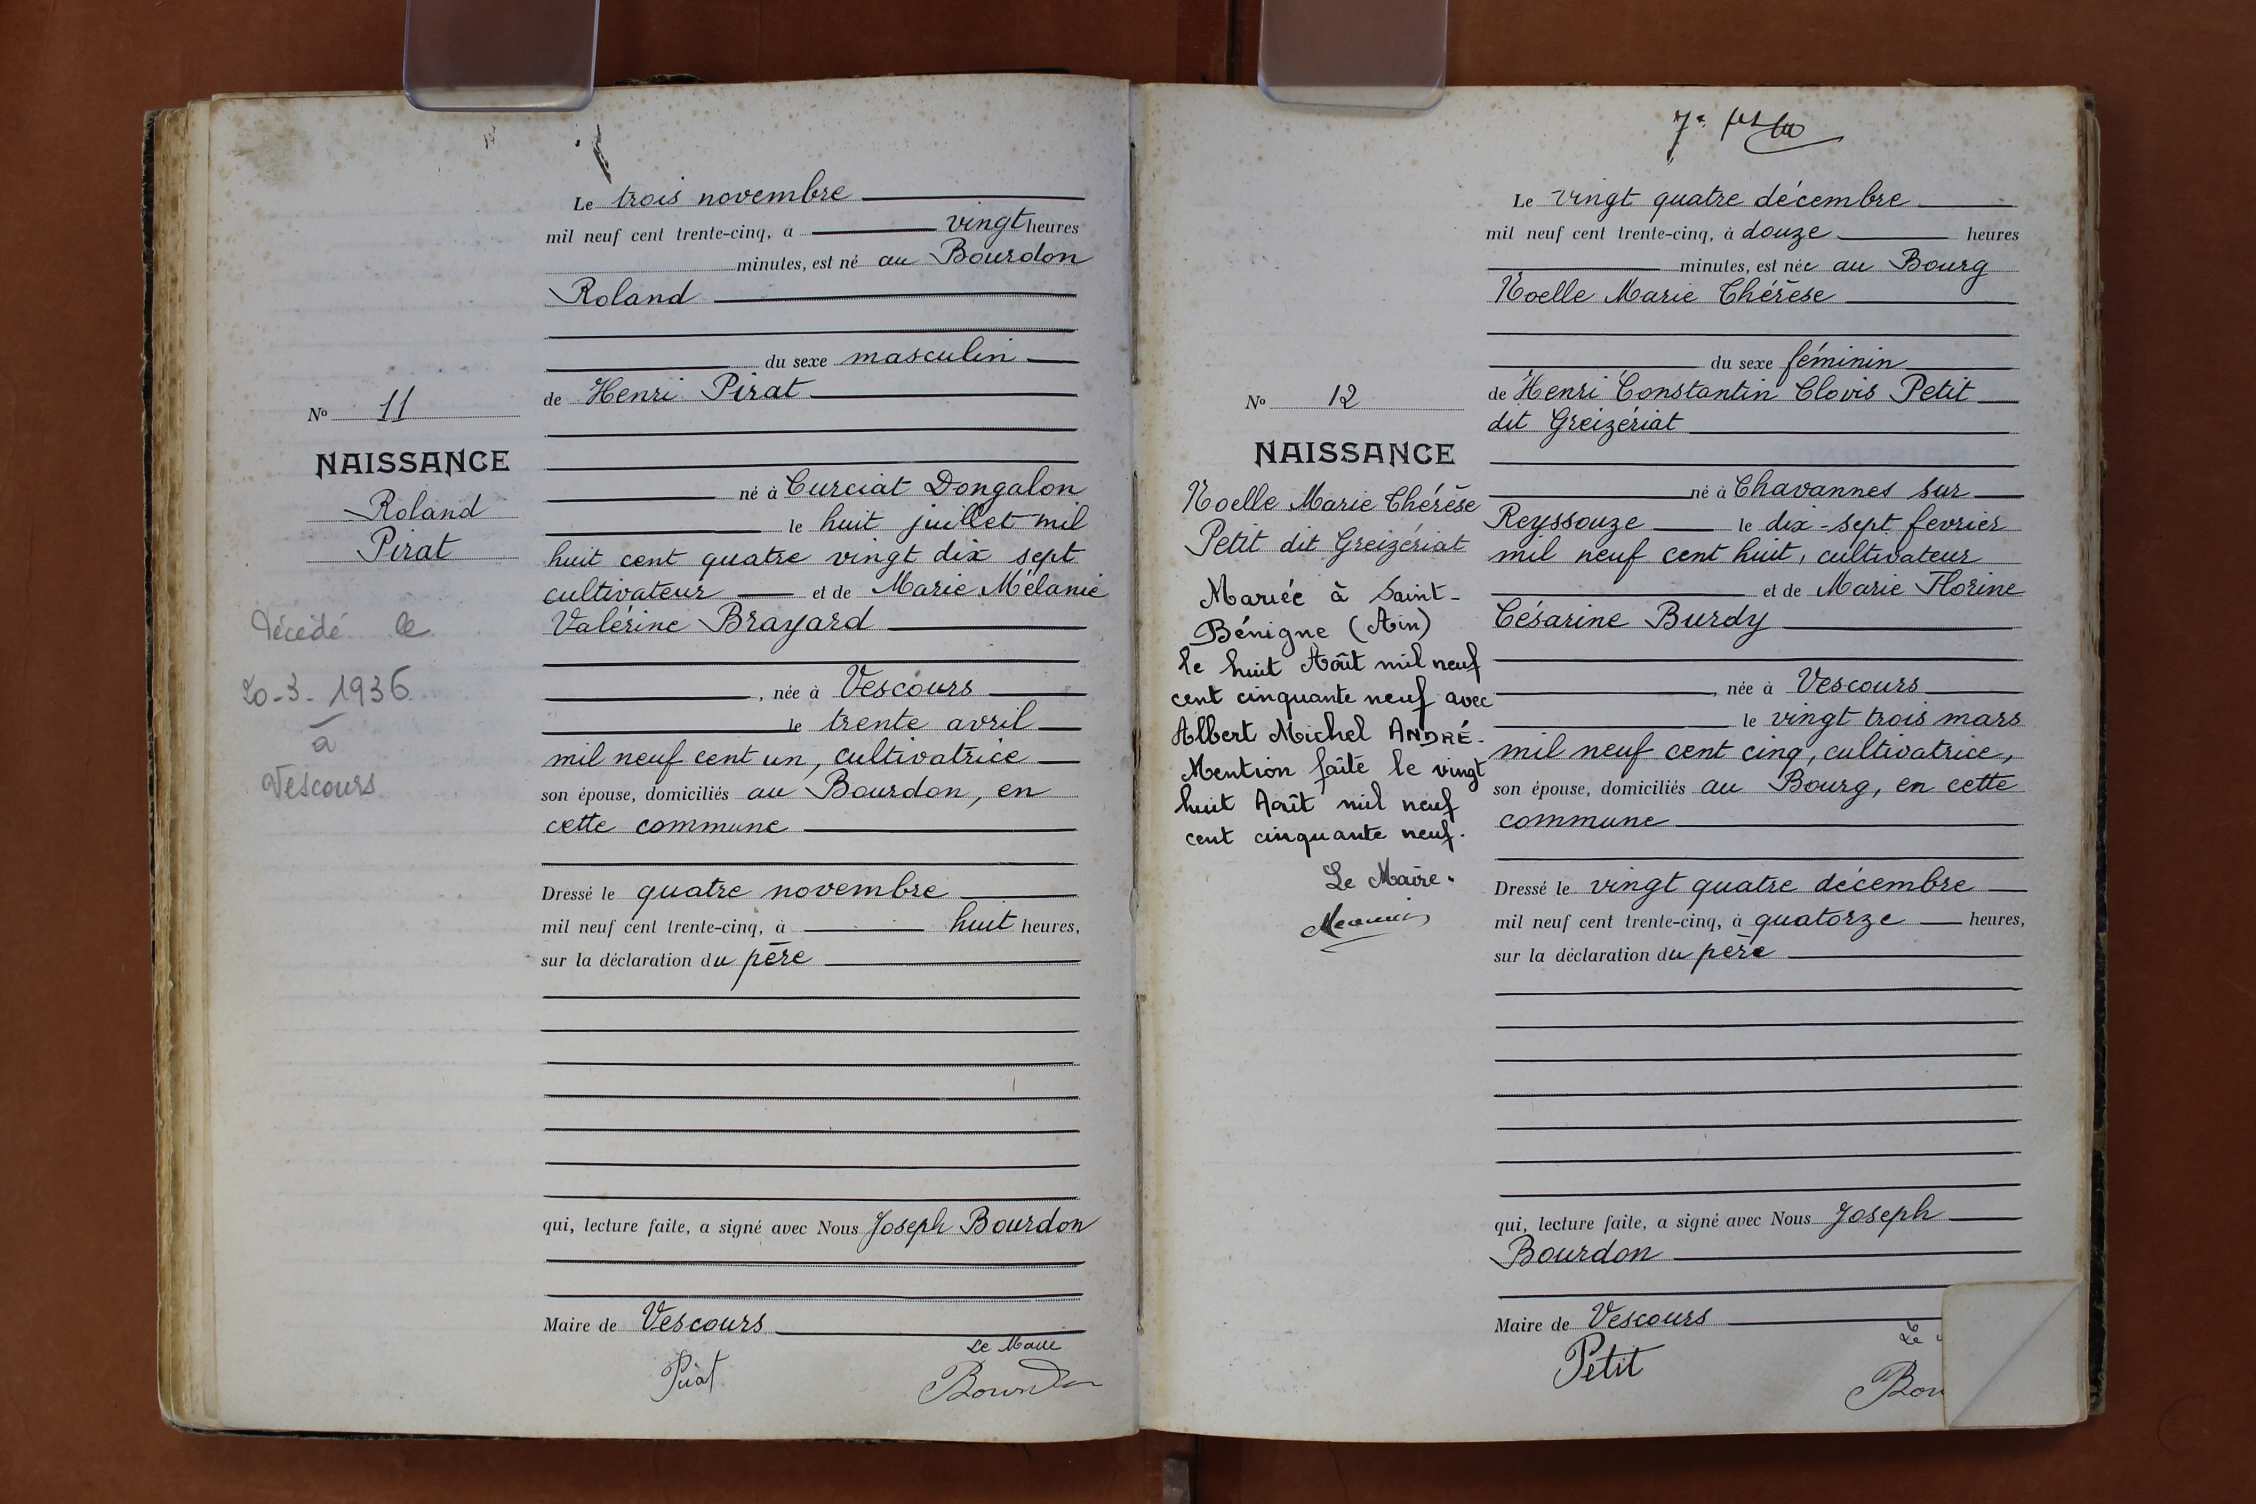 Le trois novembre
mil neuf cent trente-cinq, à vingt heures
minutes, est né au Bourdon
Roland
du sexe masculin
de Henri Pirat
né à Curciat Dongalon
le huit juillet mil
huit cent quatre vingt dix sept
cultivateur et de Marie Mélanie
Valérine Brayard
, née à Vescours
le trente avril
mil neuf cent un, cultivatrice
son épouse, domiciliés au Bourdon, en
cette commune
Dressé le quatre novembre
mil neuf cent trente-cinq, à huit heures,
sur la déclaration du père
qui, lecture faite, a signé avec Nous Joseph Bourdon
Maire de Vescours
Le Maire
Pirat
Bourdon
No 11
NAISSANCE
Roland
Pirat
Décédé le
20-3-1936
à
Vescours
7e
Le vingt quatre décembre
mil neuf cent trente-cinq, à douze heures
minutes, est née au Bourg
Noelle Marie Thérèse
du sexe féminin
de Henri Constantin Clovis Petit
dit Greizériat
né à Chavannes sur
Reyssouze le dix-sept fevrier
mil neuf cent huit, cultivateur
et de Marie Florine
Césarine Burdy
, née à Vescours
le vingt trois mars
mil neuf cent cinq, cultivatrice,
son épouse, domiciliés au Bourg, en cette
commune
Dressé le vingt quatre décembre
mil neuf cent trente-cinq, à quatorze heures,
sur la déclaration du père
qui, lecture faite, a signé avec Nous Joseph
Bourdon
Maire de Vescours
Le
Petit
Bou
No 12
NAISSANCE
Noelle Marie Thérèse
Petit dit Greizériat
Mariée à Saint-
Bénigne (Ain)
le huit Août mil neuf
cent cinquante neuf avec
Albert Michel ANDRÉ.
Mention faite le vingt
huit Août mil neuf
cent cinquante neuf.
Le Maire.